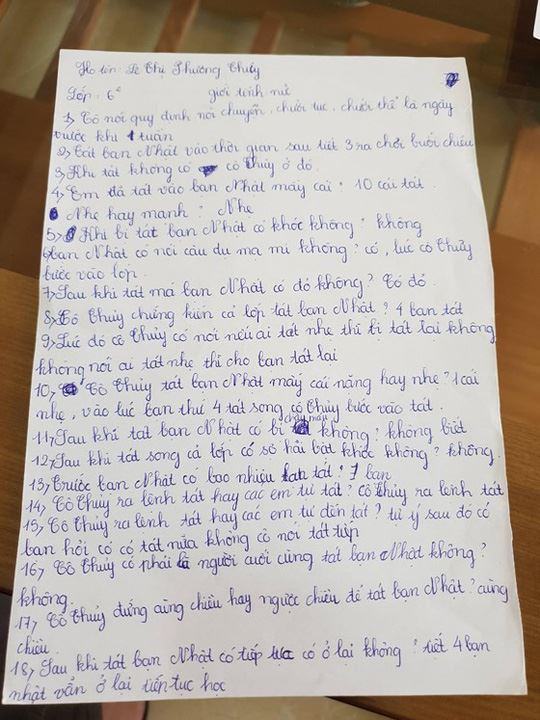 Họ tên: Lê Thị Phương Thúy
Lớp: 6² giới tính nữ
1, Cô nói quy định nói chuyện, chửi tục, chửi thề là ngày
trước khi 1 tuần
2, Tát bạn Nhật vào thời gian sau tiết 3 ra chơi buổi chiều
3, Khi tát không có cô Thủy ở đó.
4, Em đã tát vào bạn Nhật mấy cái? 10 cái tát.
Nhẹ hay mạnh? Nhẹ
5, Khi bị tát bạn Nhật có khóc không? không
6, bạn Nhật có nói câu đu ma mi không? có, lúc cô Thủy
bước vào lớp.
7, Sau khi tát má bạn Nhật có đỏ không? Có đỏ
8, Cô Thủy chứng kiến cả lớp tát bạn Nhật? 4 bạn tát
9, Lúc đó cô Thủy có nói nếu ai tát nhẹ thì bị tát lại không
không nói ai tát nhẹ thì cho bạn tát lại
10, Cô Thủy tát bạn Nhật mấy cái nặng hay nhẹ? 1 cái
nhẹ, vào lúc bạn thứ 4 tát song cô Thủy bước vào tát.
11, Sau khi tát bạn Nhật có bị chảy máu không? không biết
12, Sau khi tát song cả lớp có sợ hãi bật khóc không? không.
13, Trước bạn Nhật có bao nhiệu bạn tát? 7 bạn
14, Cô Thủy ra lệnh tát hay các em tự tát? Cô Thủy ra lệnh tát
15, Cô Thủy ra lệnh tát hay các em tự đến tát? tự ý sau đó có
bạn hỏi cô có tát nữa không cô nói tát tiếp
16, Cô Thủy có phải là người cuối cùng tát bạn Nhật không?
không.
17, Cô Thủy đứng cùng chiều hay ngược chiều để tát bạn Nhật? cùng
chiều.
18, Sau khi tát bạn Nhật có tiếp tục có ở lại không? tiết 4 bạn
nhật vẫn ở lại tiếp tục học